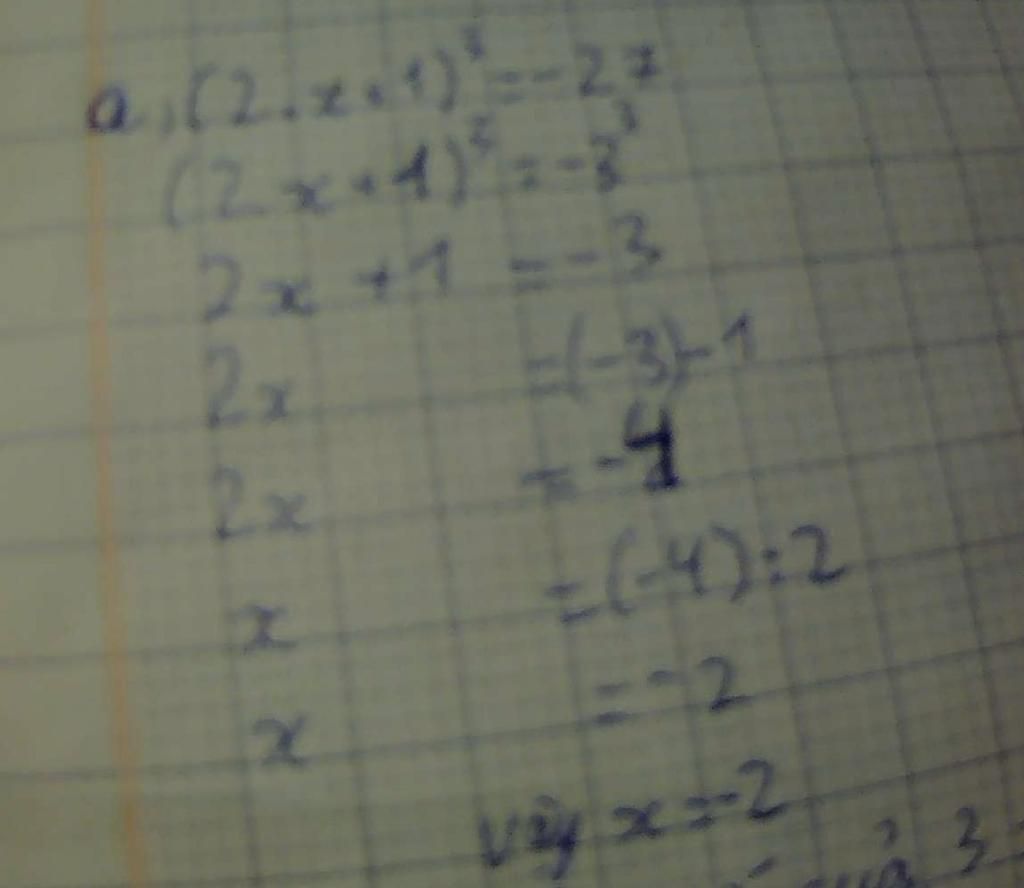 a, (2.x+1)³=-27
(2x+1)³=-3³
2x+1=-3
2x=(-3)-1
2x=-4
x=(-4):2
x=-2
Vậy x=-2
quả 3